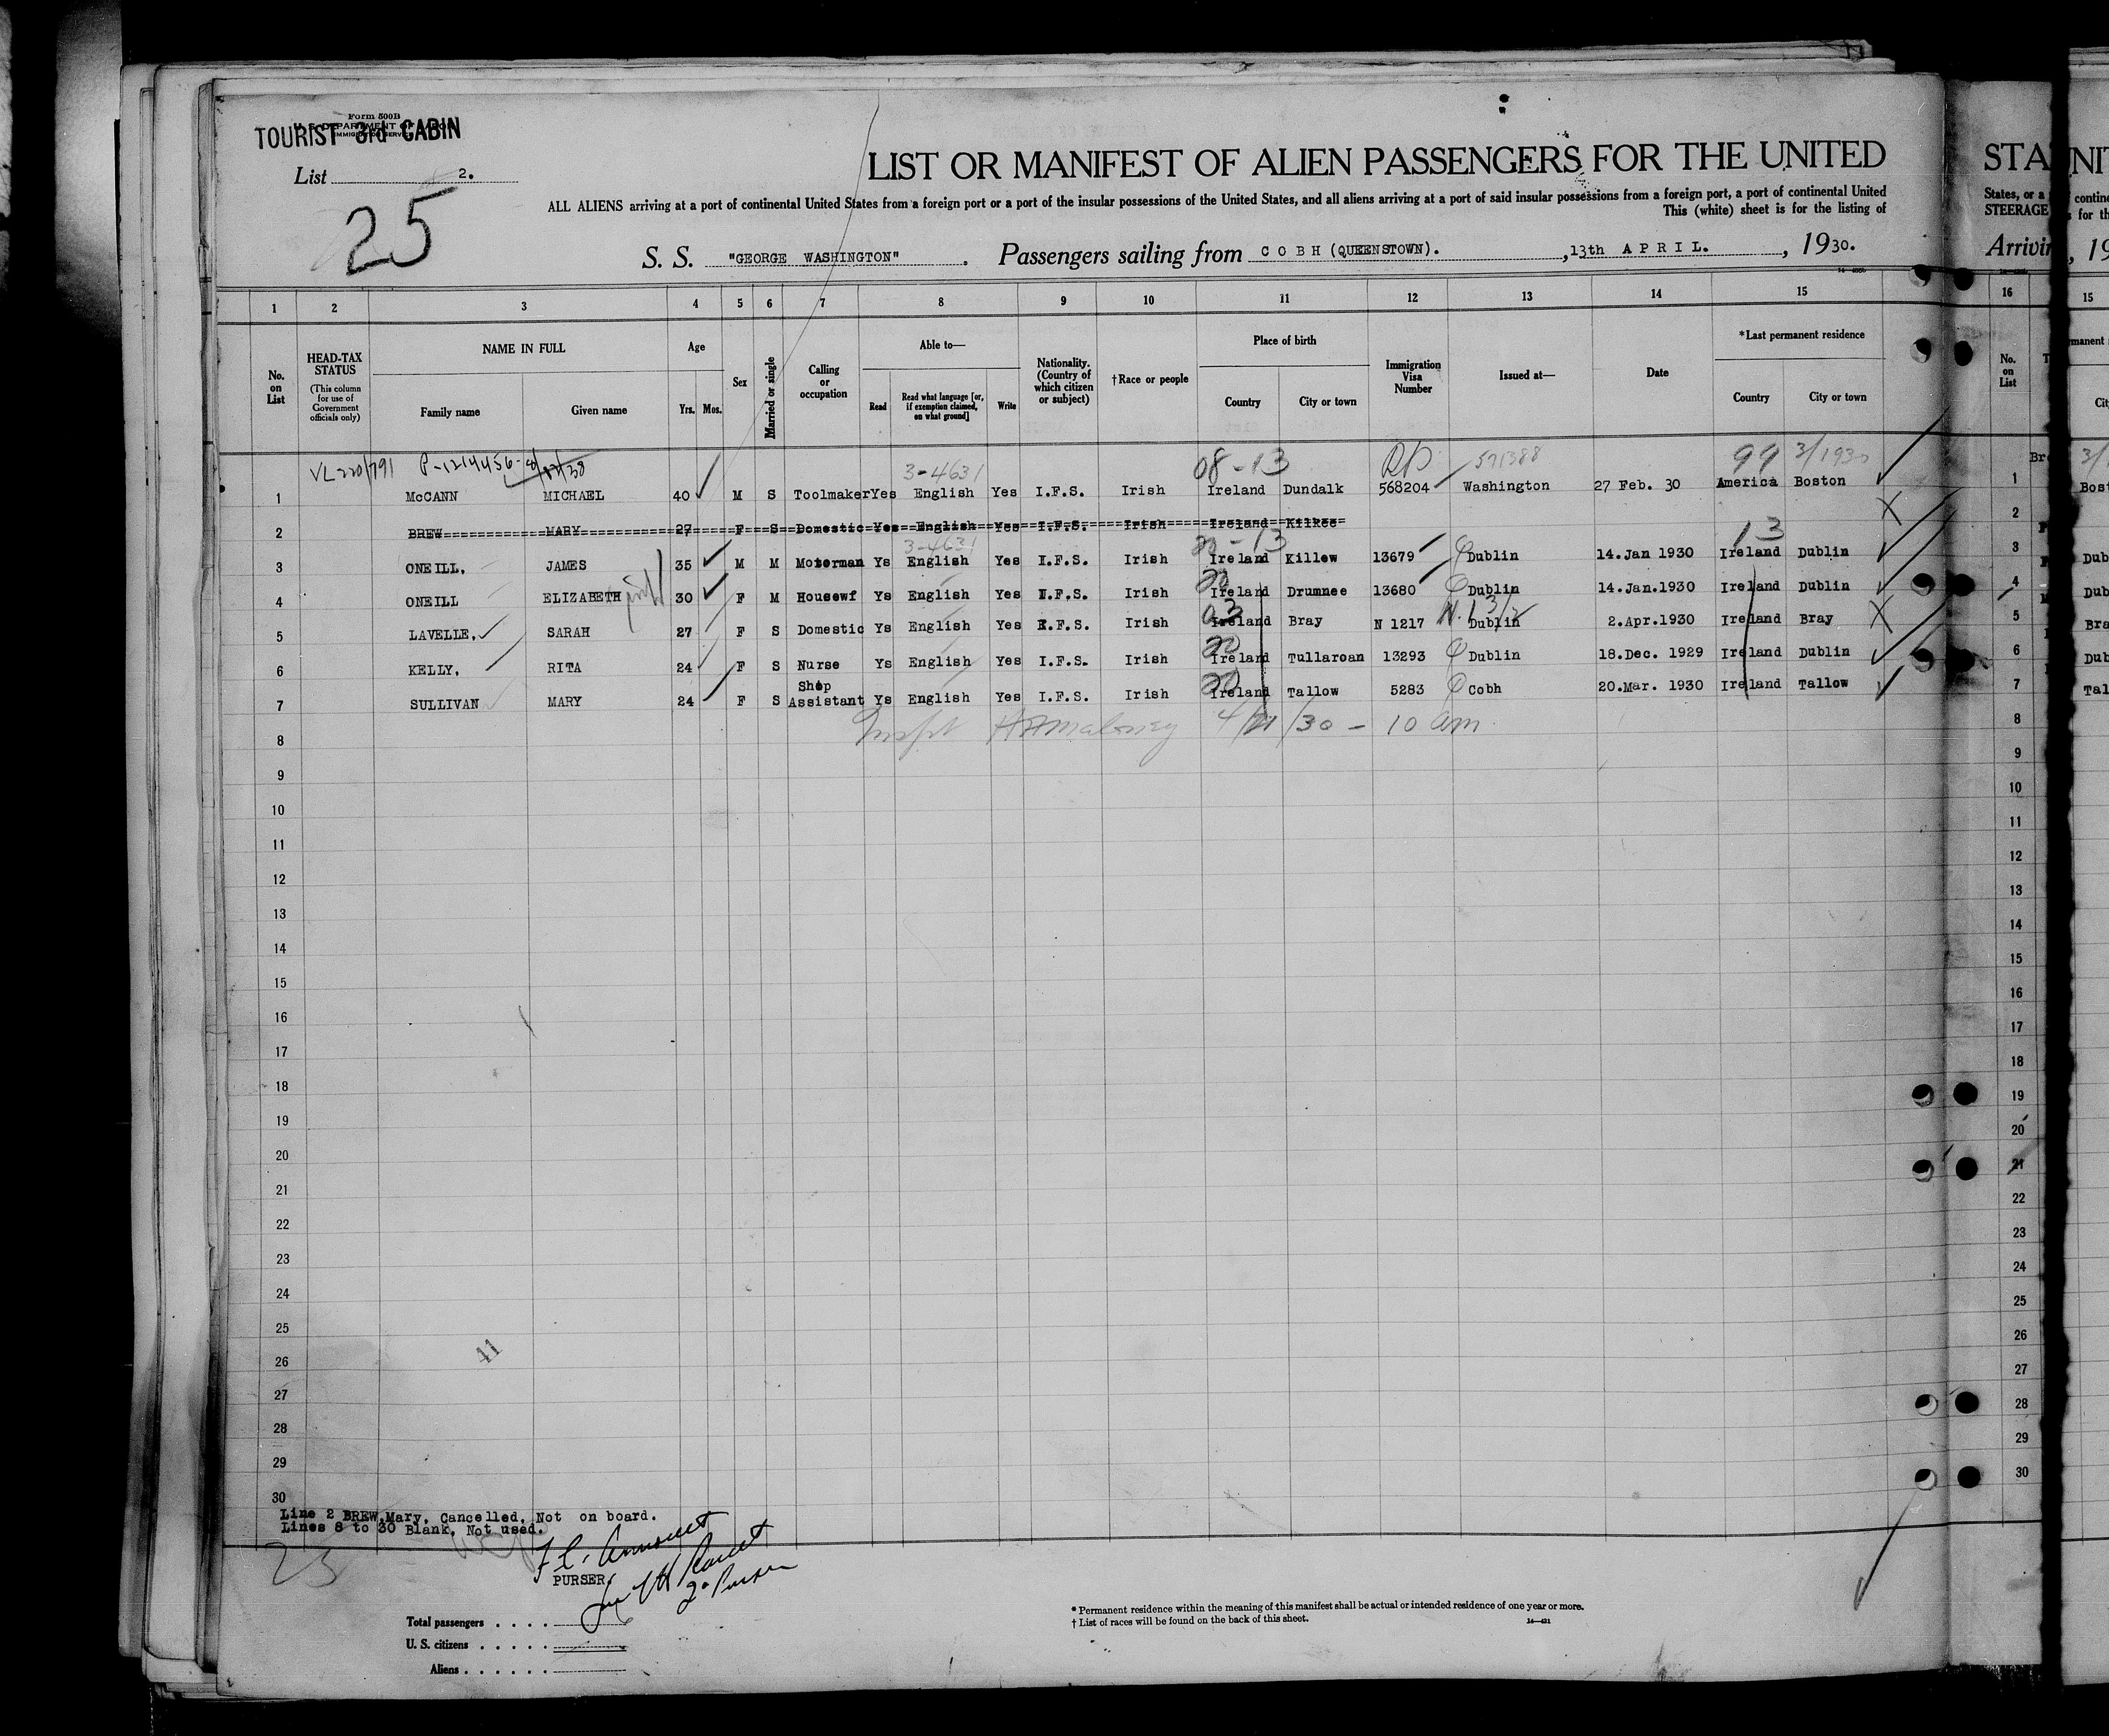 Form 500B
U. S. DEPARTMENT OF LABOR
IMMIGRATION SERVICE
TOURIST 3rd CABIN
List 2.
25
LIST OR MANIFEST OF ALIEN PASSENGERS FOR THE UNITED
ALL ALIENS arriving at a port of continental United States from a foreign port or a port of the insular possessions of the United States, and all aliens arriving at a port of said insular possessions from a foreign port, a port of continental United
This (white) sheet is for the listing of
S. S. "GEORGE WASHINGTON" . Passengers sailing from C O B H (QUEENSTOWN). , 13th A P R I L. , 1930.
1 2 3 4 5 6 7 8 9 10 11 12 13 14 15
No. on List
HEAD-TAX STATUS (This column for use of Government officials only)
NAME IN FULL
Family name Given name
Age
Yrs. Mos.
Sex
Married or single
Calling or occupation
Able to—
Read Read what language [or, if exemption claimed, on what ground] Write
Nationality. (Country of which citizen or subject)
†Race or people
Place of birth
Country City or town
Immigration Visa Number
Issued at—
Date
*Last permanent residence
Country City or town
VL 220/791 P-1214456- 3-4631 08-13 R/P 571388 99 3/1930
1 McCANN MICHAEL 40 M S Toolmaker Yes English Yes I.F.S. Irish Ireland Dundalk 568204 Washington 27 Feb. 30 America Boston
2 BREW MARY 27 F S Domestic Yes English Yes I.F.S. Irish Ireland Kilkee
3-4631 20-13 13
3 ONEILL, JAMES 35 M M Motorman Ys English Yes I.F.S. Irish Ireland Killew 13679 Dublin 14.Jan 1930 Ireland Dublin
4 ONEILL ELIZABETH 30 F M Housewf Ys English Yes I.F.S. Irish Ireland Drumnee 13680 Dublin 14.Jan.1930 Ireland Dublin
5 LAVELLE, SARAH 27 F S Domestic Ys English Yes I.F.S. Irish Ireland Bray N 1217 Dublin 2.Apr.1930 Ireland Bray
6 KELLY, RITA 24 F S Nurse Ys English Yes I.F.S. Irish Ireland Tullaroan 13293 Dublin 18.Dec. 1929 Ireland Dublin
7 SULLIVAN MARY 24 F S Shop Assistant Ys English Yes I.F.S. Irish Ireland Tallow 5283 Cobh 20.Mar. 1930 Ireland Tallow
8 Inspt Maloney 4/21/30 - 10 am
9
10
11
12
13
14
15
16
17
18
19
20
21
22
23
24
25
26
27
28
29
30
41
Line 2 BREW,Mary, Cancelled, Not on board.
Lines 8 to 30 Blank, Not used.
PURSER.
2° Purser
Total passengers
U. S. citizens
Aliens
* Permanent residence within the meaning of this manifest shall be actual or intended residence of one year or more.
† List of races will be found on the back of this sheet.
14—431
STA
States, or a
STEERAGE
Arrivin
16
No. on List
1
2
3
4
5
6
7
8
9
10
11
12
13
14
15
16
17
18
19
20
21
22
23
24
25
26
27
28
29
30
NIT
contine
for th
, 19
15
manent
Cit
Bost
Dub
Dub
Bra
Dub
Tal